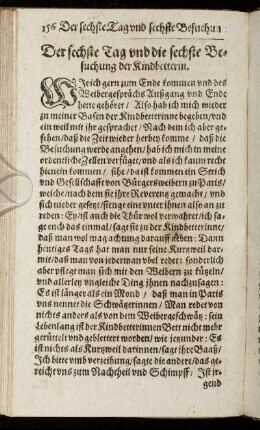 156 Der sechste Tag vnd sechste Besuchung
Der sechste Tag vnd die sechste Be-
suchung der Kindbetterin.
WJe ich gern zum Ende kommen vnd des
Weibergesprächs Außgang vnd Ende
hette gehöret / Also hab ich mich wieder
zu meiner Basen der Kindbetterinne begeben / vnd
ein weil mit ihr gesprachet / Nach dem ich aber ge-
sehen / daß die Zeit wieder herbey komme / daß die
Besuchung werde angehen / hab ich mich in meine
ordentliche Zellen verfüget / vnd als ich kaum recht
hienein kommen / sihe / da ist kommen ein Strich
vnd Gesellschafft von Bürgersweibern zu Paris /
welche / nach dem sie ihre Reverentz gemacht / vnd
sich nieder gesetzt / fienge eine vnter ihnen also an zu
reden: Ey / ist auch die Thür wol verwahret / ich sa-
ge euch das einmal / sagt sie zu der Kindbetterinne /
daß man wol mag achtung darauff geben: Dann
heutiges Tags hat man nur seine Kurzweil dar-
mit / daß man von jederman vbel redet: sonderlich
aber pflegt man sich mit den Weibern zu kützeln /
vnd allerley vngleiche Ding ihnen nachzusagen:
Es ist länger als ein Mond / daß man in Paris
vns nennet die Schwätzerinnen / Man redet von
nichts anders als von dem Weibergeschwätz: sein
Lebenlang ist der Kindbetterinnen Bett nicht mehr
gerüttelt vnd geblettert worden / wie jetzunder: Es
ist nichts als Kurtzweil darinnen / sagt ihre Baaß /
Jch bitte vmb verzeihung / sagte die andere / das ge-
reicht vns zum Nachtheil vnd Schimpff: Ist jr-
gend